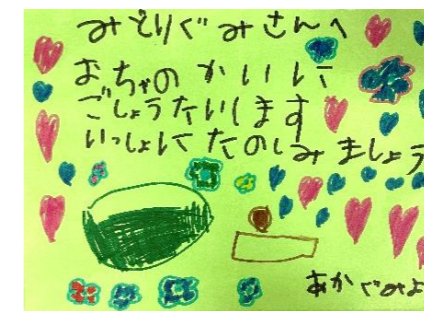 みどりぐみさんへ
おちゃの かいに
ごしょうたいします
いっしょに たのしみ ましょう
あかぐみよ